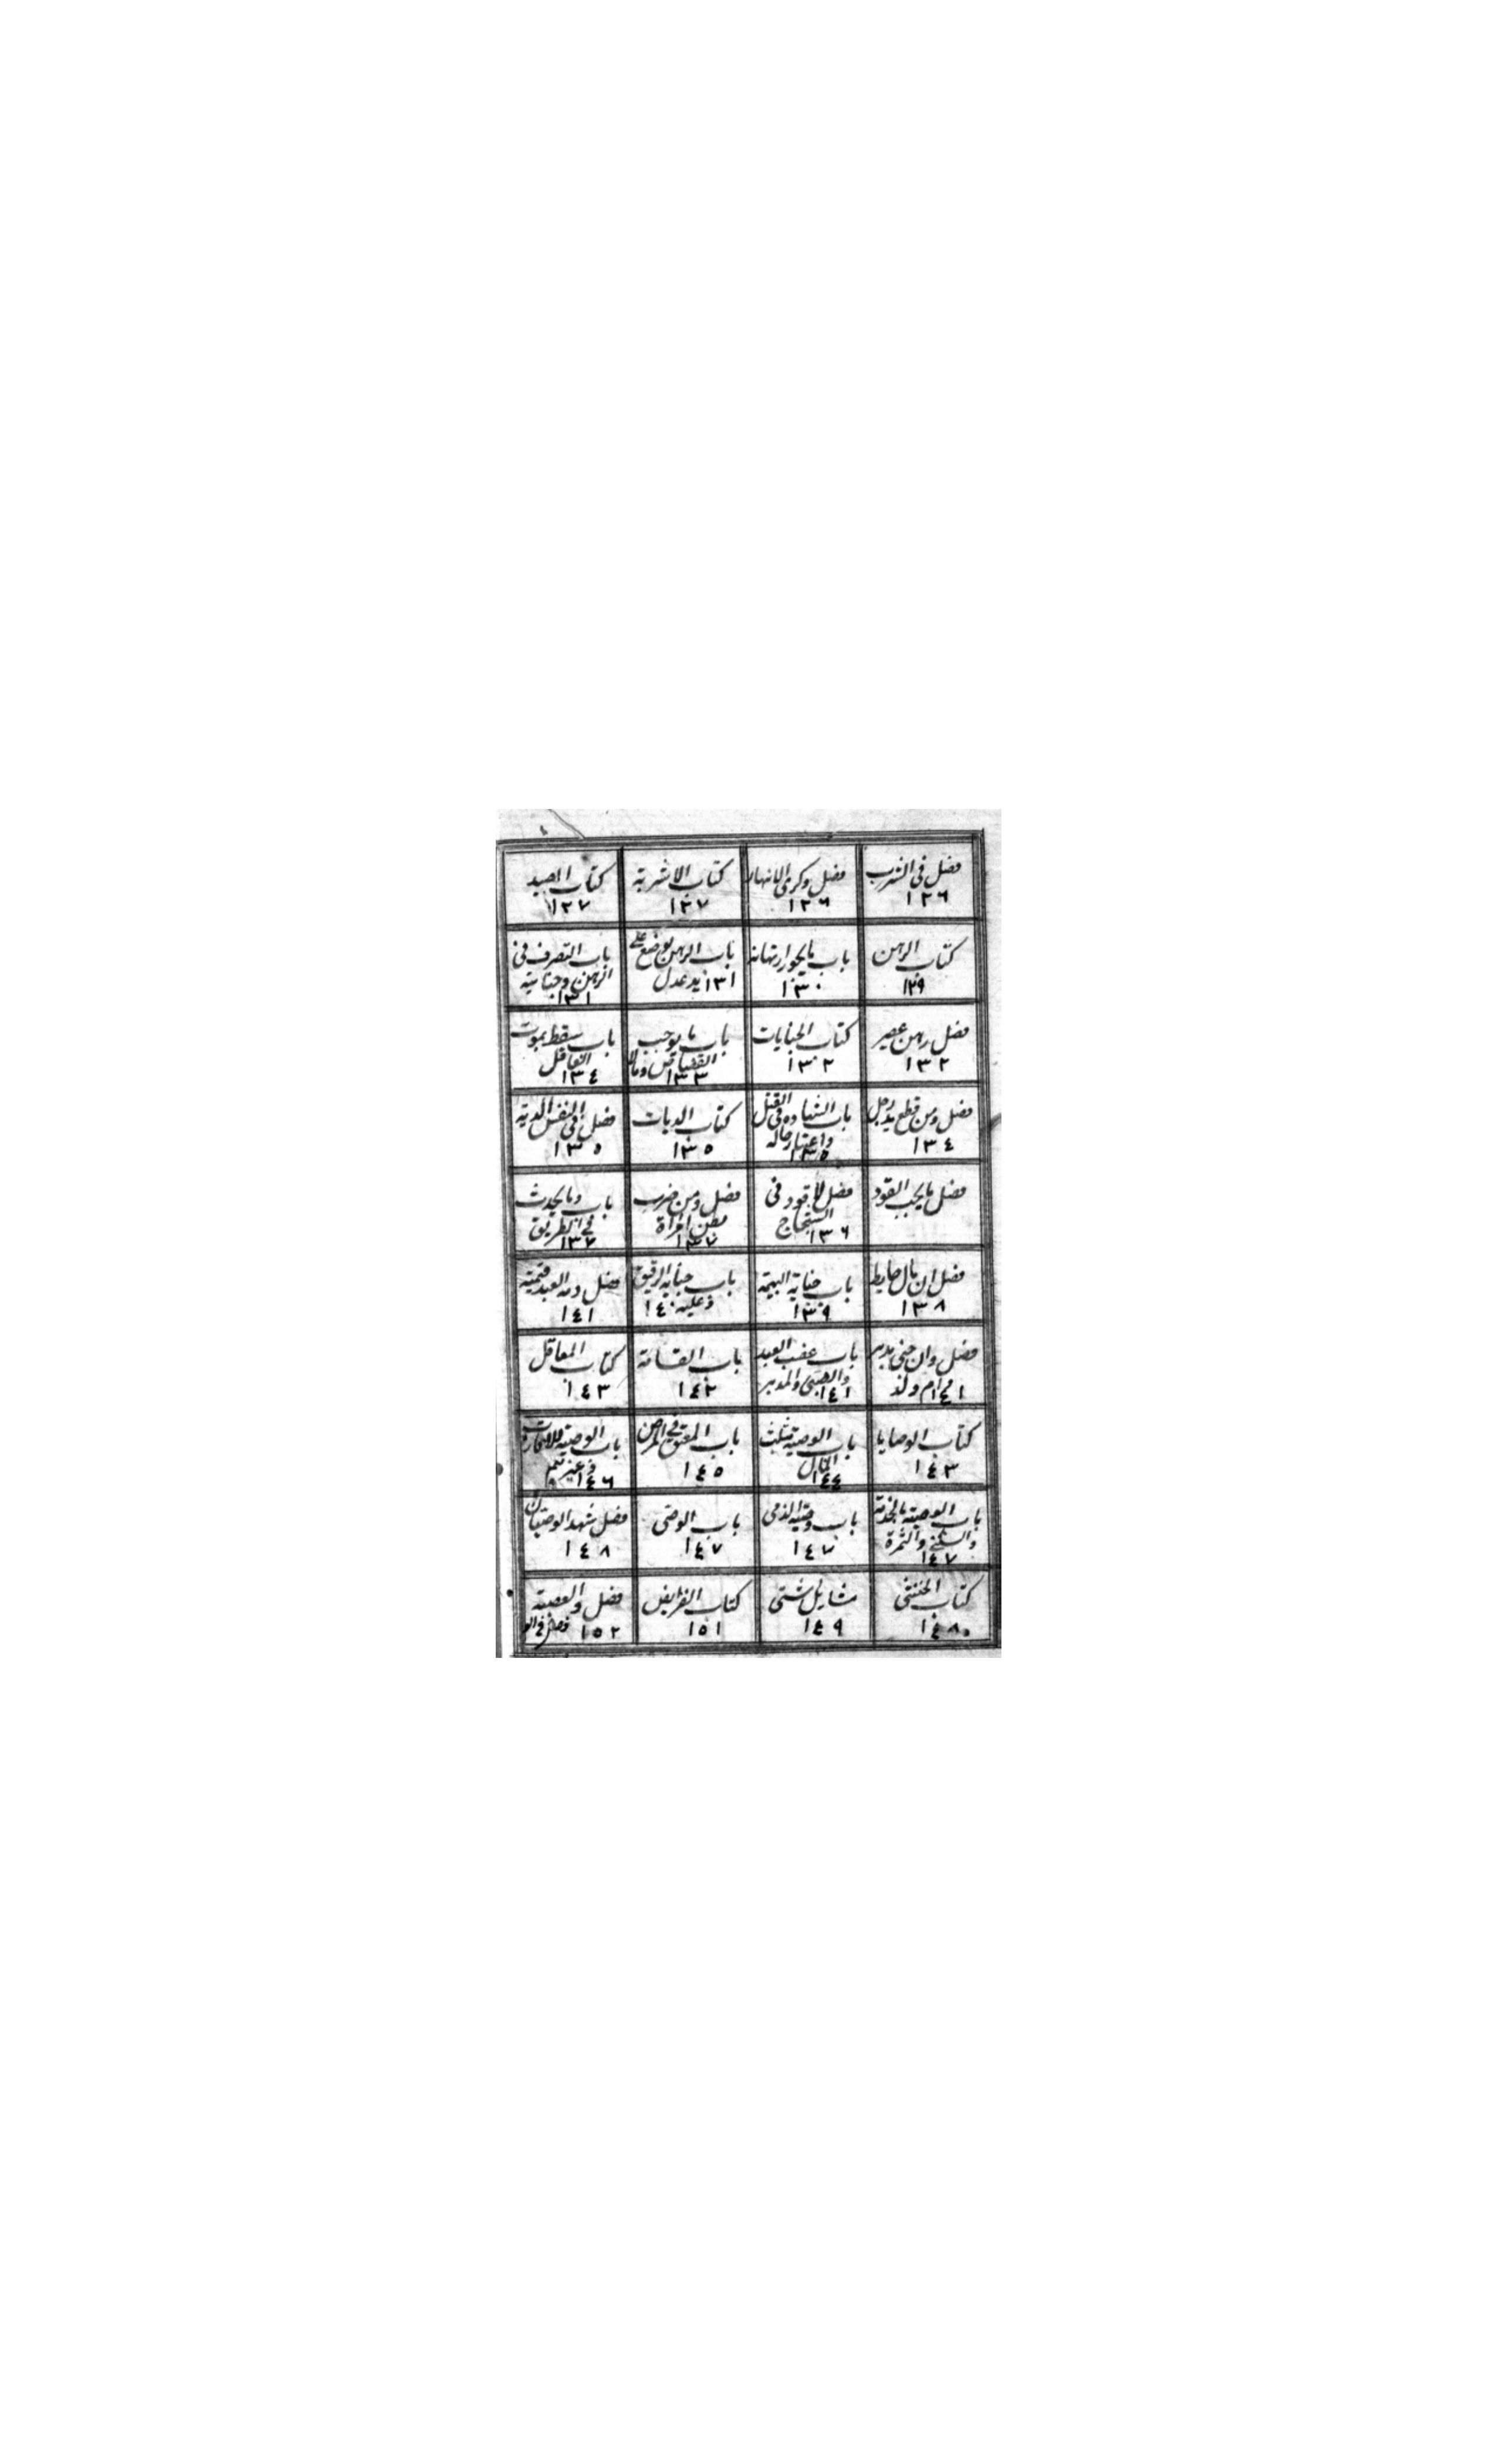 فصل في الشرب
١٢٦
فصل وكرى الانهار
١٢٦
كتاب الاشربة
١٢٧
كتاب الصيد
١٢٧
كتاب الرهن
١٢٩
باب ما يجوز ارتهانه
١٣٠
باب الرهن يوضع على
يد عدل ١٣١
باب التصرف في
الرهن وجنايته
١٣١
فصل رهن عصير
١٣٢
كتاب الجنايات
١٣٢
باب ما يوجب
القصاص وما لا
١٣٣
باب سقط بموت
القاتل
١٣٤
فصل ومن قطع يد رجل
١٣٤
باب الشهادة في القتل
واعتبار حاله
١٣٥
كتاب الديات
١٣٥
فصل في النفس الدية
١٣٥
فصل ما يجب القود
فصل لا قود في
الشجاج
١٣٦
فصل ومن ضرب
بطن امراة
١٣٧
باب وما يحدث
في الطريق
١٣٧
فصل ان مال حايط
١٣٨
باب جناية البهيمة
١٣٩
باب جناية الرقيق
وعليه ١٤٠
فصل دية العبد قيمته
١٤١
فصل وان جنى مدبر
او ام ولد ١٤١
باب غصب العبد
والصبي والمدبر
١٤١
باب القسامة
١٤٢
كتاب المعاقل
١٤٣
كتاب الوصايا
١٤٣
باب الوصية بثلث
المال
١٤٤
باب العتق في المرض
١٤٥
باب الوصية للاقارب
وغيرهم
١٤٦
باب الوصية بالخدمة
والسكنى والثمرة
١٤٧
باب وصية الذمي
١٤٧
باب الوصي
١٤٧
فصل شهد الوصيان
١٤٨
كتاب الخنثى
١٤٨
مسايل شتى
١٤٩
كتاب الفرايض
١٥١
فصل والعصبة
١٥٢